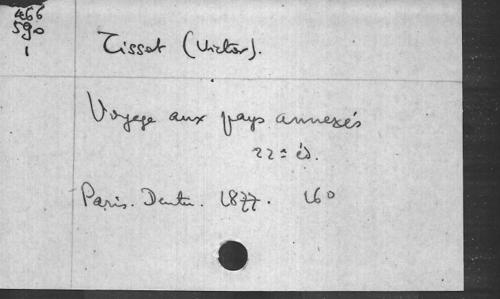 466
590
1
Tissot (Victor).
Voyage aux pays annexés
22e éd.
Paris. Dentu. 1877. 16o